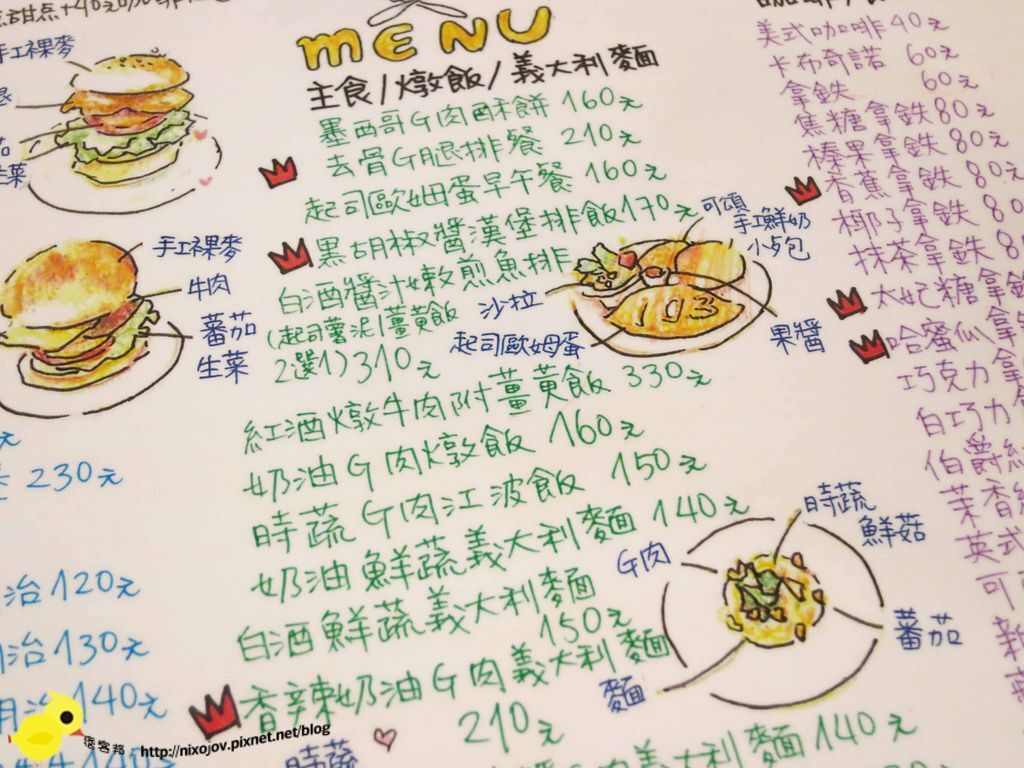 MENU
主食/燉飯/義大利麵
墨西哥G肉酥餅 160元
去骨G腿排餐 210元
起司歐姆蛋早午餐 160元
黑胡椒醬漢堡排飯170元
白酒醬汁嫩煎魚排
(起司薯泥/薑黃飯
2選1)310元
紅酒燉牛肉附薑黃飯 330元
奶油G肉燉飯 160元
時蔬G肉江波飯 150元
奶油鮮蔬義大利麵 140元
白酒鮮蔬義大利麵
150元
香辣奶油G肉義大利麵
210元
義大利麵 140元
手工裸麥
手工裸麥
牛肉
蕃茄
生菜
可頌
手工鮮奶
小餐包
沙拉
起司歐姆蛋
果醬
時蔬
鮮菇
G肉
蕃茄
麵
時蔬
230元
治120元
治130元
140元
140元
美式咖啡40元
卡布奇諾 60元
拿鐵 60元
焦糖拿鐵80元
榛果拿鐵 80元
香蕉拿鐵 80元
椰子拿鐵 80
抹茶拿鐵
太妃糖拿鐵
哈蜜瓜拿
巧克力拿
白巧力
伯爵
茉香
英式
可
痞客邦 : http://nixojov.pixnet.net/blog